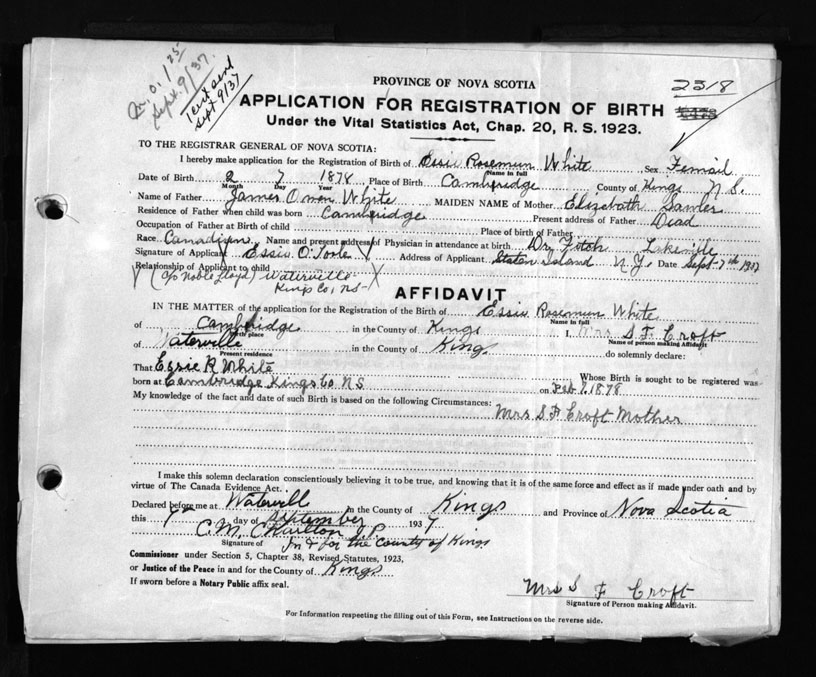 $1.25
Sept. 9/37.
sent
Sept 9/37
PROVINCE OF NOVA SCOTIA
2318
APPLICATION FOR REGISTRATION OF BIRTH
Under the Vital Statistics Act, Chap. 20, R. S. 1923.
TO THE REGISTRAR GENERAL OF NOVA SCOTIA:
I hereby make application for the Registration of Birth of Essie Rosemun White Sex Femail
Name in full
Date of Birth 2 7 1878 Place of Birth Cambridge County of Kings N S.
Month Day Year
Name of Father James Owen White MAIDEN NAME of Mother Elizebath
Residence of Father when child was born Cambridge Present address of Father Dead
Occupation of Father at Birth of child Place of birth of Father
Race Canadian Name and present address of Physician in attendance at birth Dr, Fitch Lakeville
Signature of Applicant Essie O'Toole Address of Applicant Staten Island N Y, Date Sept 7th 1937
Relationship of Applicant to child (c/o Noble Lloyd) Waterville
Kings Co, NS
AFFIDAVIT
IN THE MATTER of the application for the Registration of the Birth of Essie Rosemun White
Name in full
of Cambridge in the County of Kings I, Mrs S F Croft
Birth place Name of person making Affidavit
of Waterville in the County of King, do solemnly declare:
Present residence
That Essie R White Whose Birth is sought to be registered was
born at Cambridge Kings Co NS on Feb 7, 1878
My knowledge of the fact and date of such Birth is based on the following Circumstances:
Mrs S F Croft Mother
I make this solemn declaration conscientiously believing it to be true, and knowing that it is of the same force and effect as if made under oath and by
virtue of The Canada Evidence Act.
Declared before me at Watervill in the County of Kings and Province of Nova Scotia
this 7th day of September 1937
C. M. Charlton J. P.
Signature of In & for the County of Kings
Commissioner under Section 5, Chapter 38, Revised Statutes, 1923,
or Justice of the Peace in and for the County of Kings
If sworn before a Notary Public affix seal.
Mrs S F Croft
Signature of Person making Affidavit.
For Information respecting the filling out of this Form, see Instructions on the reverse side.